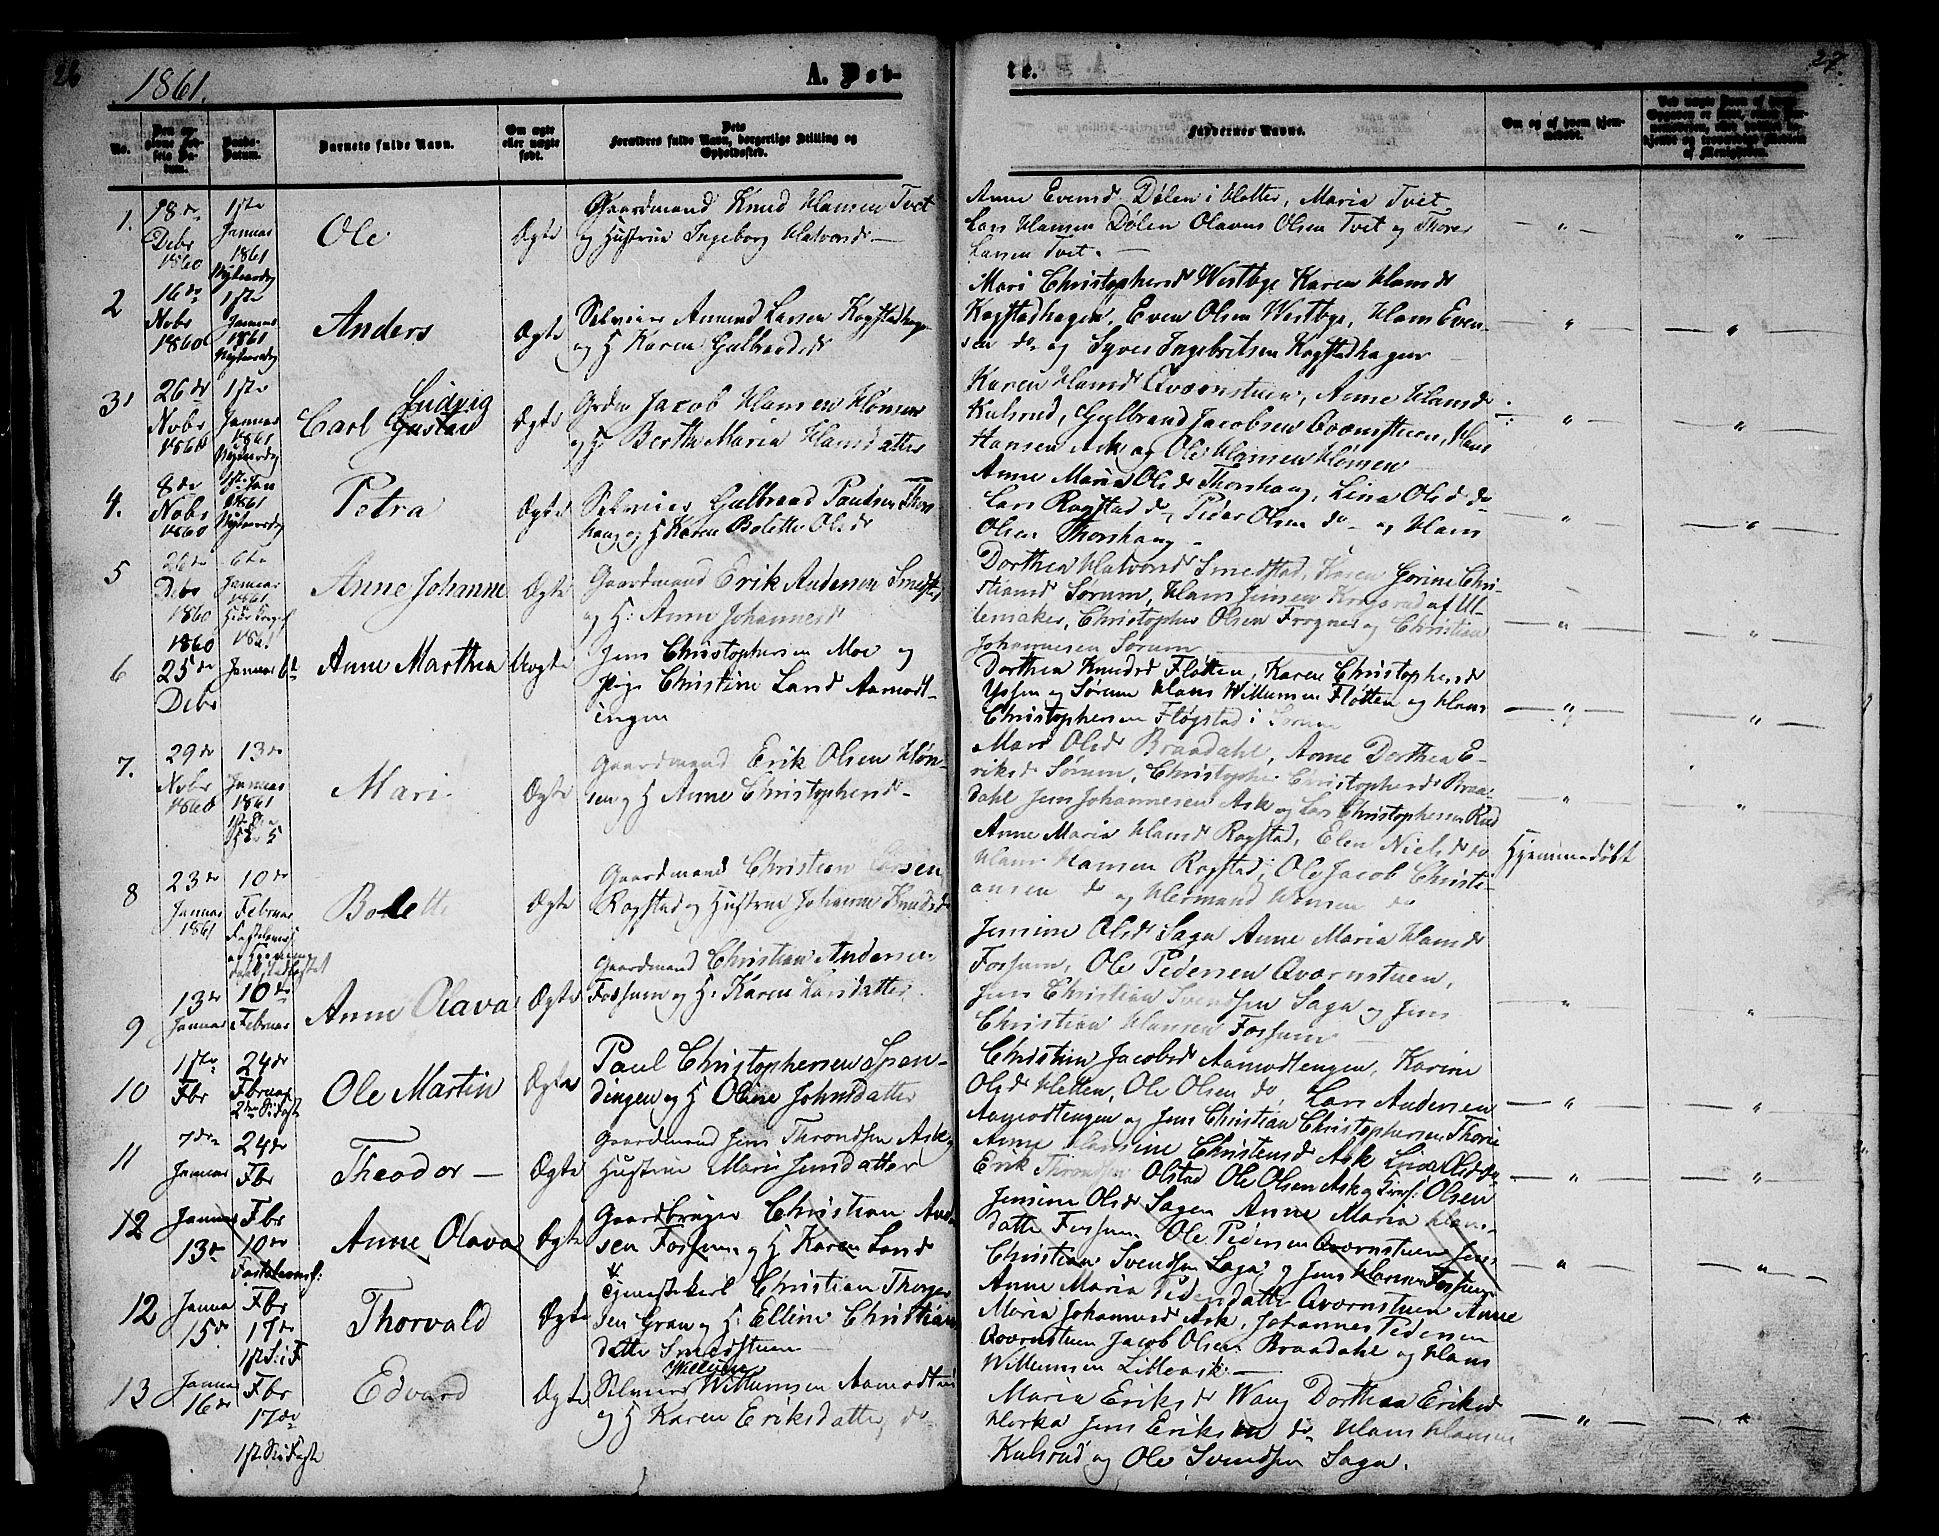 26
1861.
A. Døb-
No.
Barnets fulde Navn.
Om ægte
eller uægte
født.
Forældres fulde Navn, borgerlige Stilling og
Opholdssted.
1.
18de
Debr
1860
1ste
Januar
1861
Nytaarsdag
Ole
Ægte
Gaardmand Knud Hansen Tvet
og Hustrue Ingeborg Halvorsd
2
16de
Novbr
1860
1ste
Januar
1861
Nytaarsdag
Anders
Ægte
Selveier Amund Larsen Rogstadhagen
og H Karen Gulbrandsd
3
26de
Novbr
1860
1ste
Januar
1861
Nytaarsdag
Ludvig
Carl Gustav
Ægte
Jacob Hansen Hønsen
og H. Berthe Maria Hansdatter
4.
8de
Nobr
1860
1ste Jan
1861
Nytaarsdag
Petra
Ægte
Selveier Gulbrand Paulsen Thors
haug og H Karen Bolette Olsdr
5
26de
Debr
1860
6te
Januar
1861
Anne Johanne
Ægte
Gaardmand Erik Andersen Smedstad
og H. Anne Johannesd
6
1860
25de
Debr
1861
Januar 6te
Anne Marthea
Uægte
Jens Christophersen Moe og
Pige Christine Larsd Aamodt-
engen
7.
29de
Novbr
1860
13de
Januar
1861
Mari
Ægte
Gaardmand Erik Olsen Høn-
sen og H Anne Christophersd
8
23de
Januar
1861
10de
Februar
Bolette
Ægte
Gaardmand Christian Larsen
Rogstad og Hustrue Johanne Knudsd
9
13de
Januar
10de
Februar
Anne Olava
Ægte
Gaardmand Christian Andersen
Fossum og H. Karen Larsdatter
10
1ste
Fbr
24de
Februar
Ole Martin
Ægte
Paul Christophersen Span-
dingen og H Oline Johnsdatter
11
7de
Januar
24de
Fbr
Theodor
Ægte
Gaardmand Jens Throndsen Ask og
Hustrue Maria Jensdatter
12
Januar
13de
Fbr
10de
Fastelavnss:
Anne Olava
Ægte
Gaardbruger Christian Ander
sen Fossum og H Karen Larsd
12
Janua
15de
Fbr
17de
1ste S: i F
Thorvald
Ægte
Tjenestekarl Christian Thorger
sen Gran og H. Elline Christians
datter Smedstuen
13
Janua
16de
Fbr
17de
1ste S i Faste
Edvard
Ægte
Selveier Willumsen Aamodteie
og H Karen Eriksdatter do
te.
27.
Faddernes Navne.
Om og af hvem hjem-
medøbt.
Anne Evensd Dølen i Holter, Maria Tvet
Lars Hansen Dølen Olavus Olsen Tvet og Thorer
Larsen Tvet.
Mari Christophersd Westbye Karen Hansd
Rogstadhagen, Even Olsen Westbye, Hans Even-
sen do og Syver Ingebritsen Rogstadhagen
Karen Hansd Qværnstuen, Anne Hansd
Kulsrud, Gulbrand Jacobsen Qværnstuen, Hans
Hansen Ask og Ole Hansen Hønsen
Anne Maria Olsd Thorshaug, Lina Olsd do
Lars Rogstad do, Peder Olsen do og Hans
Olsen Thorshaug
Dorthea Halvorsd Smedstad, Karen Gorine Chri-
stiansd Sørum, Hans Jensen Krogsrud af Ul-
lensaker, Christopher Olsen Frogner og Christian
Johannesen Sørum
Dorthea Knudsd Fløtten, Karen Christophersd
Sørum Hans Willumsen Fløtten og Hans
Christophersen Fløgstad i Sørum
Mari Olsd Braadahl, Anne Dorthea E-
riksd Sørum, Christopher Christophersd Braa-
dahl Jens Johannesen Ask og Lars Christophersen Rud
Anne Maria Hansd Rogstad, Elen Nielsd do
Hans Hansen Rogstad, Ole Jacob Christi-
ansen do og Hermand Hansen do
Hjemmedøbt
Jensine Olsd Saga Anne Maria Hansd
Fossum, Ole Pedersen Qværnstuen,
Jens Christian Svendsen Saga og Jens
Christian Hansen Fossum
Christine Jacobsd Aamodtengen, Karine
Olsd Kletten, Ole Olsen do, Lars Andersen
Aamodtengen og Jens Christian Christophersen Thorie
Anne Hansine Christensd Ask Lina Olsd do
Erik Throndsen Olstad Ole Olsen Ask og Olsen
Jensine Olsd Sagen Anne Maria Hans-
datter Fossum Ole Pedersen Qværnstuen Jens
Christian Svendsen Saga og Jens Hansen Fossum
Anne Maria Pedersdatter Qværnstuen Anne
Maria Johannesd Ask, Johannes Pedersen
Qværnstuen Jacob Olsen Braadahl og Hans
Willumsen Lilleask.
Maria Eriksd Wang Dorthea Eriksd
Horka Jens Eriksen do Hans Hansen
Kulsrud og Ole Svendsen Saga.